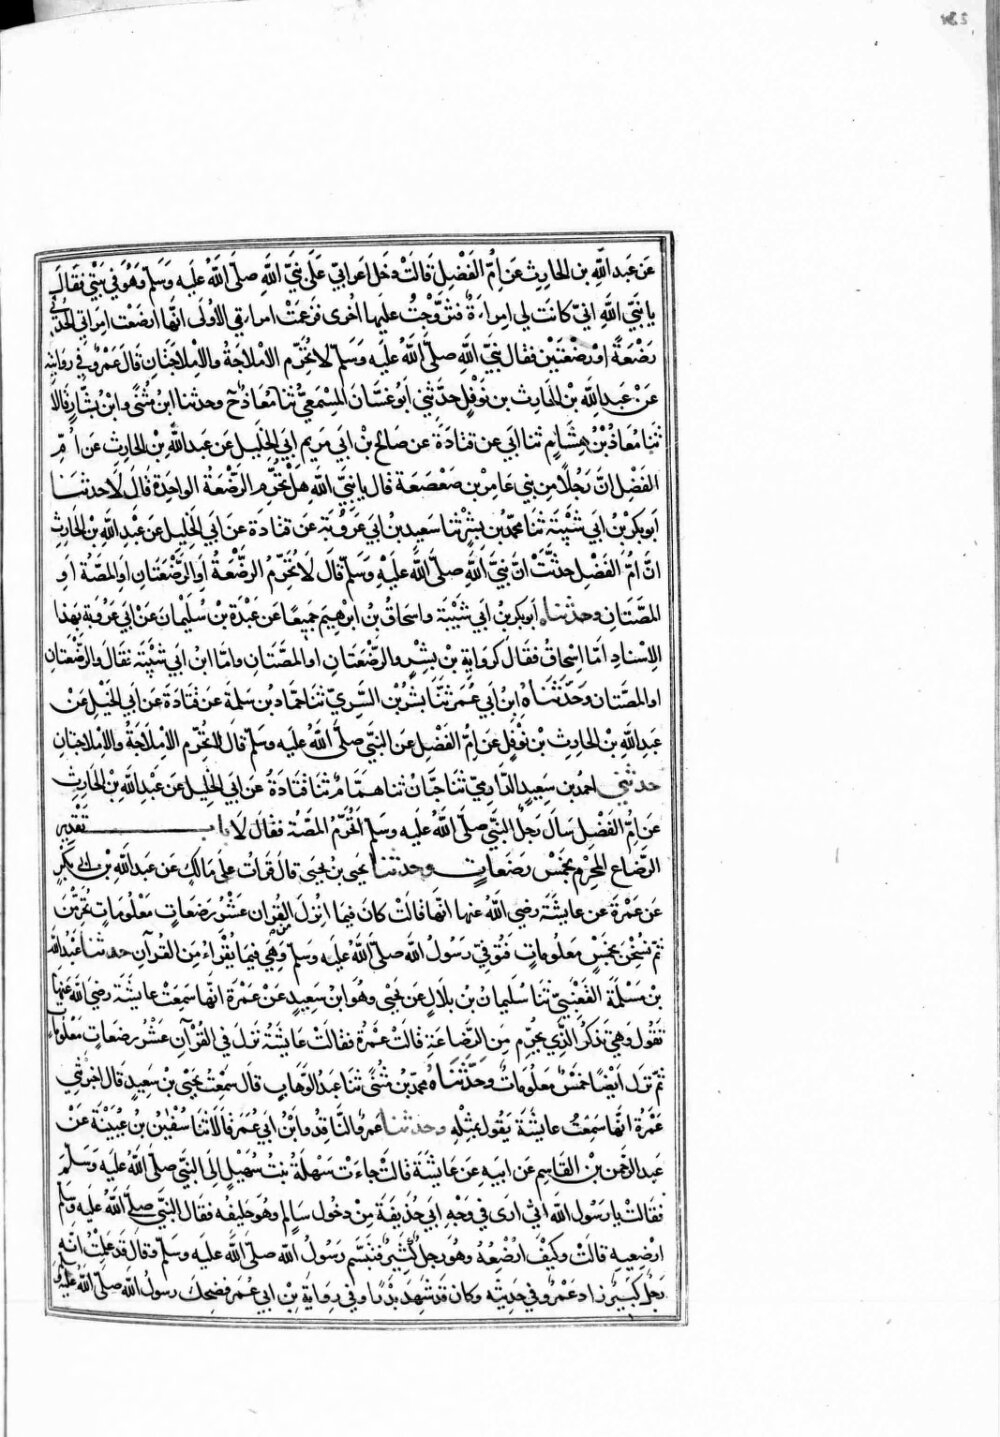 عَن عَبدِ اللهِ بن الحارِثِ عَن اُمِّ الفَضْلِ قَالَتْ دخل اَعرابيّ عَلَى نَبيِّ اللهِ صلى اللهُ عليه وسَلّم وَهُوَ في بَيْتي فقالَ
يا نَبيَّ اللهِ انّي كانَت لي امراَةٌ فتزوَّجْتُ عليها اُخرى فزعَمَتْ امراَتي الاُولَى انّها ارضَعت امراَتي الحُدثَى
رَضْعَةً اوْ رَضْعتَيْن فقال نَبيُّ اللهِ صلّى اللهُ عليه وَسَلّم لا تُحَرِّم الاِمْلاجَةُ والاِمْلاجَتَانِ قالَ عَمْرٌو في روايتِه
عَنْ عَبدِ اللهِ بْنِ الحارِث بن نَوْفَلٍ حدّثَني اَبُو غسَّانَ المِسْمَعيُّ ثنا مُعَاذٌ ح وحدثنا ابنُ مُثنًّى وابْنُ بَشّارٍ قَالَا
ثنا مُعاذُ بْنُ هِشَامٍ ثنا ابي عن قتَادَةَ عن صَالحِ بْنِ ابي مَريم ابي الخَليلِ عَن عَبدِ اللهِ بْنِ الحارثِ عَن اُمّ
الفضْلِ انَّ رَجُلًا مِن بني عامِر بن صَعْصَعَة قال يا نَبيَّ اللهِ هَلْ تُحَرِّم الرَّضْعَةُ الواحِدَةُ قَالَ لَا حدثنَا
اَبوبكرِ بْنُ ابي شَيْبَة ثنا محمّد بْن بِشْرٍ ثنا سَعيدُ بنُ ابي عَروُبَة عَن قتادَة عَن ابي الخَليل عَن عَبْدِ اللهِ بْنِ الحَارِث
انّ اُمّ الفَضْل حدثَتْ انّ نَبيَّ اللهِ صلّى اللهُ عَلَيْهِ وسَلّم قالَ لَا تُحَرِّمُ الرضْعَةُ اَوِ الرَّضْعَتَانِ او المصّةُ اَو
المصّتَانِ وحدثناه اَبوبكر بنُ ابي شَيْبَة واسحَاقُ بنُ ابرهيم جَميعًا عَن عَبْدَة بْن سُلَيْمانَ عَنْ ابي عَروُبة بهَذا
الاِسْنادِ اَمّا اِسْحاقُ فقَالَ كروَايَةِ بْن بِشْرٍ والرّضْعَتَانِ او المصّتَانِ وامّا ابنُ ابي شَيْبَة فقال والرّضْعتَانِ
او المصّتانِ وَحدّثنَاهُ ابْنُ ابي عُمَر ثنَا بِشْرُ بنُ السَّرِيّ ثنا حمّاد بن سلمَة عَن قتَادَة عَن ابي الخَليْلِ عَنْ
عَبدِ اللهِ بْن الحَارِثِ بْن نَوْفلٍ عَن اُمِّ الفَضْل عَن النَّبيّ صلّى اللهُ عليه وسلم قَالَ لا تُحَرِّم الاِمْلاجَةُ والاِمْلاجَتَانِ
حدثني احمد بن سَعيدٍ الدّارِميُّ ثنا حَبّانُ ثنا همّامٌ ثنا قتَادَةُ عن ابي الخليل عَن عَبْدِ اللهِ بْنِ الحَارِثِ
عَن اُمّ الفَضْلِ سَاَلَ رَجُلٌ النَّبيَّ صلى اللهُ عليه وسلم اتُحَرِّمُ المصّةُ فقالَ لَا بــــاب تقْدير
الرّضاعِ المحرّم بخَمْسِ رَضَعاتٍ وحدثنا يَحيى بْن يحيَى قال قراْتُ عَلَى مَالِكٍ عَن عَبدِ اللهِ بْن ابي بَكْرٍ
عَن عَمْرَةَ عَن عايشَة رَضي اللهُ عنها انّها قَالَتْ كانَ فيما اُنْزِلَ مِنَ القُراَن عَشْرُ رَضَعَاتٍ مَعْلُومَاتٍ يُحَرِّمْنَ
ثمّ نُسِخْنَ بخَمْسٍ مَعلُوماتٍ فتُوُفّيَ رَسُولُ الله صلّى اللهُ عليه وسَلّم وَهِيَ فيمَا يُقْرَاُ مِنَ القُرآنِ حدثنا عَبْدُ اللهِ
بْن مَسْلَمَة القَعْنَبيّ ثنَا سُلَيْمانُ بْن بِلَالٍ عَن يَحْيى وهُوَ ابن سَعيدٍ عَنْ عَمْرَة انها سَمِعَتْ عايشَة رضي الله عَنها
تقُول وَهيَ تذكُر الّذي يحرّم مِنَ الرّضَاعَةِ قالَتْ عَمْرَةُ فقالَتْ عَايشَةُ نزَلَ في القُرْآنِ عَشْرُ رضعَاتٍ مَعْلُومَاتٍ
ثمّ نزلَ اَيْضًا خمْسٌ مَعْلُوماتٌ وحَدّثنَاه محمّد بْن مُثنًّى ثنا عَبدُ الوَهّابِ قال سَمِعْتُ يَحيَى بْن سَعيدٍ قال اخبرَتْني
عَمْرَةُ انّها سَمِعَتْ عايشَةَ تقُول بمِثْلِهِ وحدثنا عَمْرٌو النّاقِدُ وابْنُ ابي عُمَر قَالَا ثنا سُفْيٰنُ بْن عُيَيْنَة عَنْ
عَبدِ الرّحمنِ بْنِ القَاسِمِ عَن ابيهِ عَن عَايشَة قالَتْ جاءَتْ سَهْلَةُ بنتُ سُهَيْلٍ اِلَى النَّبيّ صلّى اللهُ عليه وسَلّمَ
فقَالَتْ يا رَسُولَ الله انّي اَرى في وَجْهِ ابي حُذيفَةَ مِنْ دخُولِ سَالمٍ وهُوَ حَليفُه فقَال النّبيّ صلّى اللهُ عليه وسَلّم
ارْضِعيه قالَتْ وكيْفَ اُرْضِعُهُ وهُو رَجلٌ كَبيرٌ فتبَسّم رَسُولُ الله صلّى اللهُ عليه وسلّم وقال قَد عَلِمْتُ انّه
رَجُلٌ كَبيرٌ زاد عَمْرٌو في حَديثه وكان قد شَهِدَ بَدْرًا وفي رِوَايَة بْن ابي عمَر فضحِكَ رسُولُ الله صلّى اللهُ عليه و